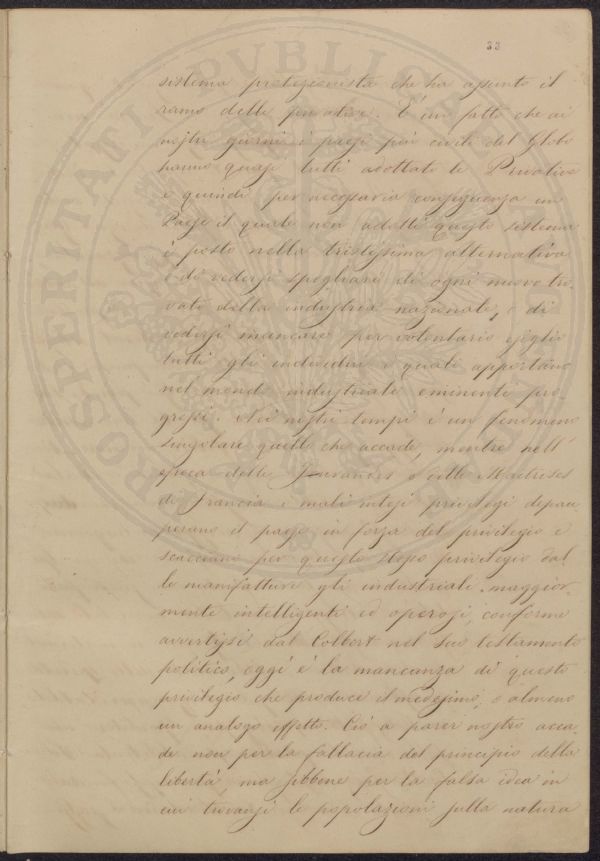 33
sistema protezionista che ha assunto il
ramo delle privative. È un fatto che ai
nostri giorni i paesi più civili del Globo
hanno quasi tutti adottato le Privative
e quindi per necessaria conseguenza un
Paese il quale non adotti questo sistema
è posto nella tristissima alternativa
o di vedersi spogliare di ogni nuovo tro-
vato della industria nazionale, o di
vedersi mancare per volontario esiglio
tutti gli individui i quali apportano
nel mondo industriale eminenti pro-
gressi. Nei nostri tempi è un fenomeno
singolare quello che accade, mentre nell'
epoca delle Jurandes e delle Maîtrises
di Francia i mali intesi privilegi depau-
perano il paese in forza del privilegio e
scacciano per questo stesso privilegio dal-
le manifatture gli industriali maggior-
mente intelligenti ed operosi, conforme
avvertissi dal Colbert nel suo testamento
politico, oggi è la mancanza di questo
privilegio che produce il medesimo, o almeno
un analogo effetto. Ciò a parer nostro acca-
de non per la fallacia del principio della
libertà, ma sibbene per la falsa idea in
cui trovansi le popolazioni sulla natura
PROSPERITATI PVBLICAE